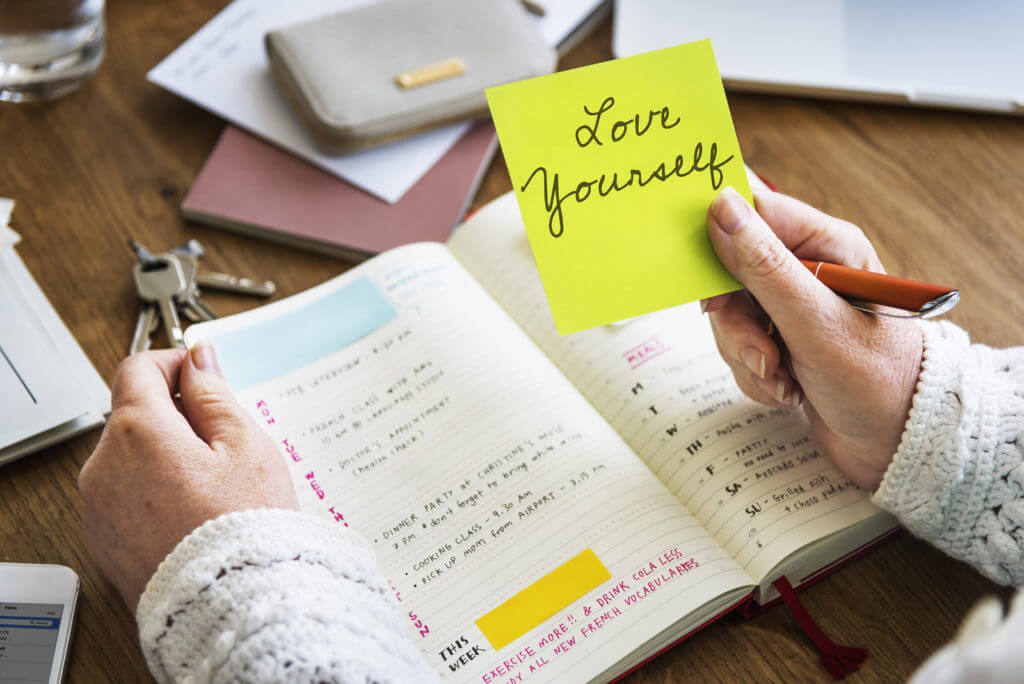 Love
Yourself
JOB INTERVIEW - 4.30 PM
MON
FRENCH CLASS WITH AMY
10 AM @ LANGUAGES STUDIO
TUE
DOCTOR'S APPOINTMENT
(health check)
WED
THU
DINNER PARTY at CHRISTINE'S HOUSE
7 PM * don't forget to bring white wine
COOKING CLASS - 9.30 AM
PICK UP mom from AIRPORT - 3.15 PM
SUN
THIS
WEEK.
EXERCISE MORE!! & DRINK COLA LESS
ALL NEW FRENCH VOCABULARIES
MEALS
M -
T -
W - Pasta with
TH - PARTY
no need to cook
F - Avocado Salad
SA -
SU - Grilled Fish
+ choco pudding
Inbox
Edit